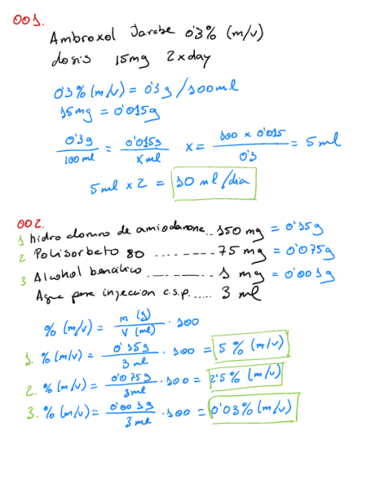 001.
Ambroxol Jarabe 0'3% (m/v)
dosis 15mg 2xday
0'3% (m/v) = 0'3g/100ml
15mg = 0'015g
0'3g / 100ml = 0'015g / x ml x = 100 x 0'015 / 0'3 = 5ml
5ml x 2 = 10 ml/dia
002.
1 hidrocloruro de amiodarona.. 150 mg = 0'15g
2 Polisorbeto 80 -------- 75 mg = 0'075g
3 Alcohol bencílico ---------- 1 mg = 0'001g
Agua para inyeccion c.s.p. ..... 3 ml
% (m/v) = m (g) / V (ml) · 100
1. % (m/v) = 0'15g / 3ml · 100 = 5% (m/v)
2. % (m/v) = 0'075g / 3ml · 100 = 2'5% (m/v)
3. % (m/v) = 0'001g / 3ml · 100 = 0'03% (m/v)